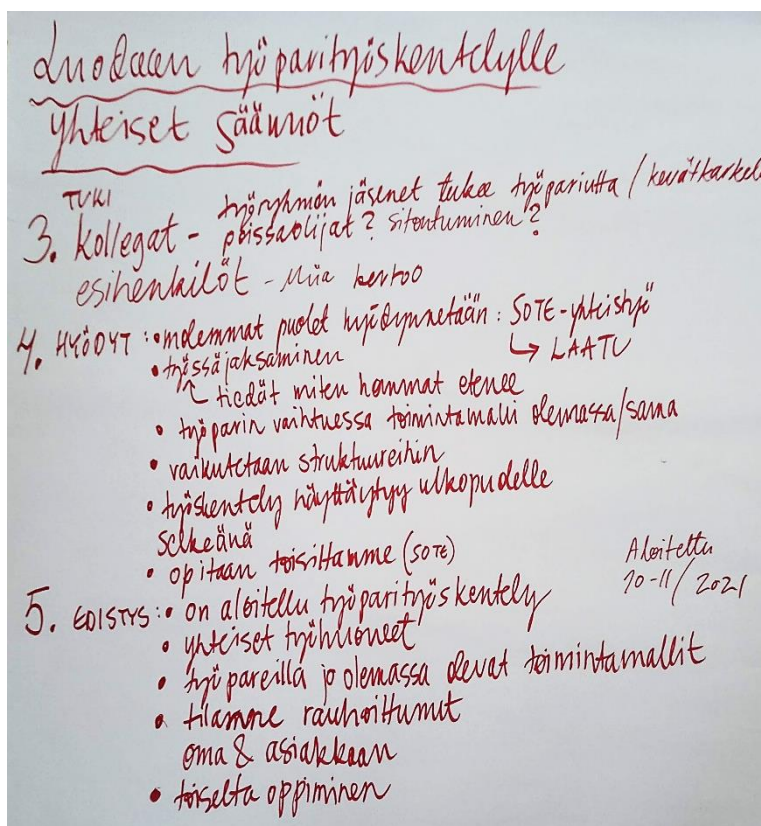 Luodaan työparityöskentelylle
yhteiset säännöt
TUKI
3. Kollegat - työryhmän jäsenet tukee työpariutta / kevätkarkel
poissaolijat? sitoutuminen?
esihenkilöt - Miia kertoo
4. HYÖDYT: • molemmat puolet hyödynnetään: SOTE-yhteistyö
↳ LAATU
• työssäjaksaminen
tiedät miten hommat etenee
• työparin vaihtuessa toimintamalli olemassa/sama
• vaikutetaan struktuureihin
• työskentely näyttäytyy ulkopuolelle
selkeänä
• opitaan toisiltamme (SOTE)
Aloitettu
10-11/2021
5. EDISTYS: • on aloiteltu työparityöskentely
• yhteiset työhuoneet
• työpareilla jo olemassa olevat toimintamallit
• tilanne rauhoittunut
oma & asiakkaan
• toiselta oppiminen